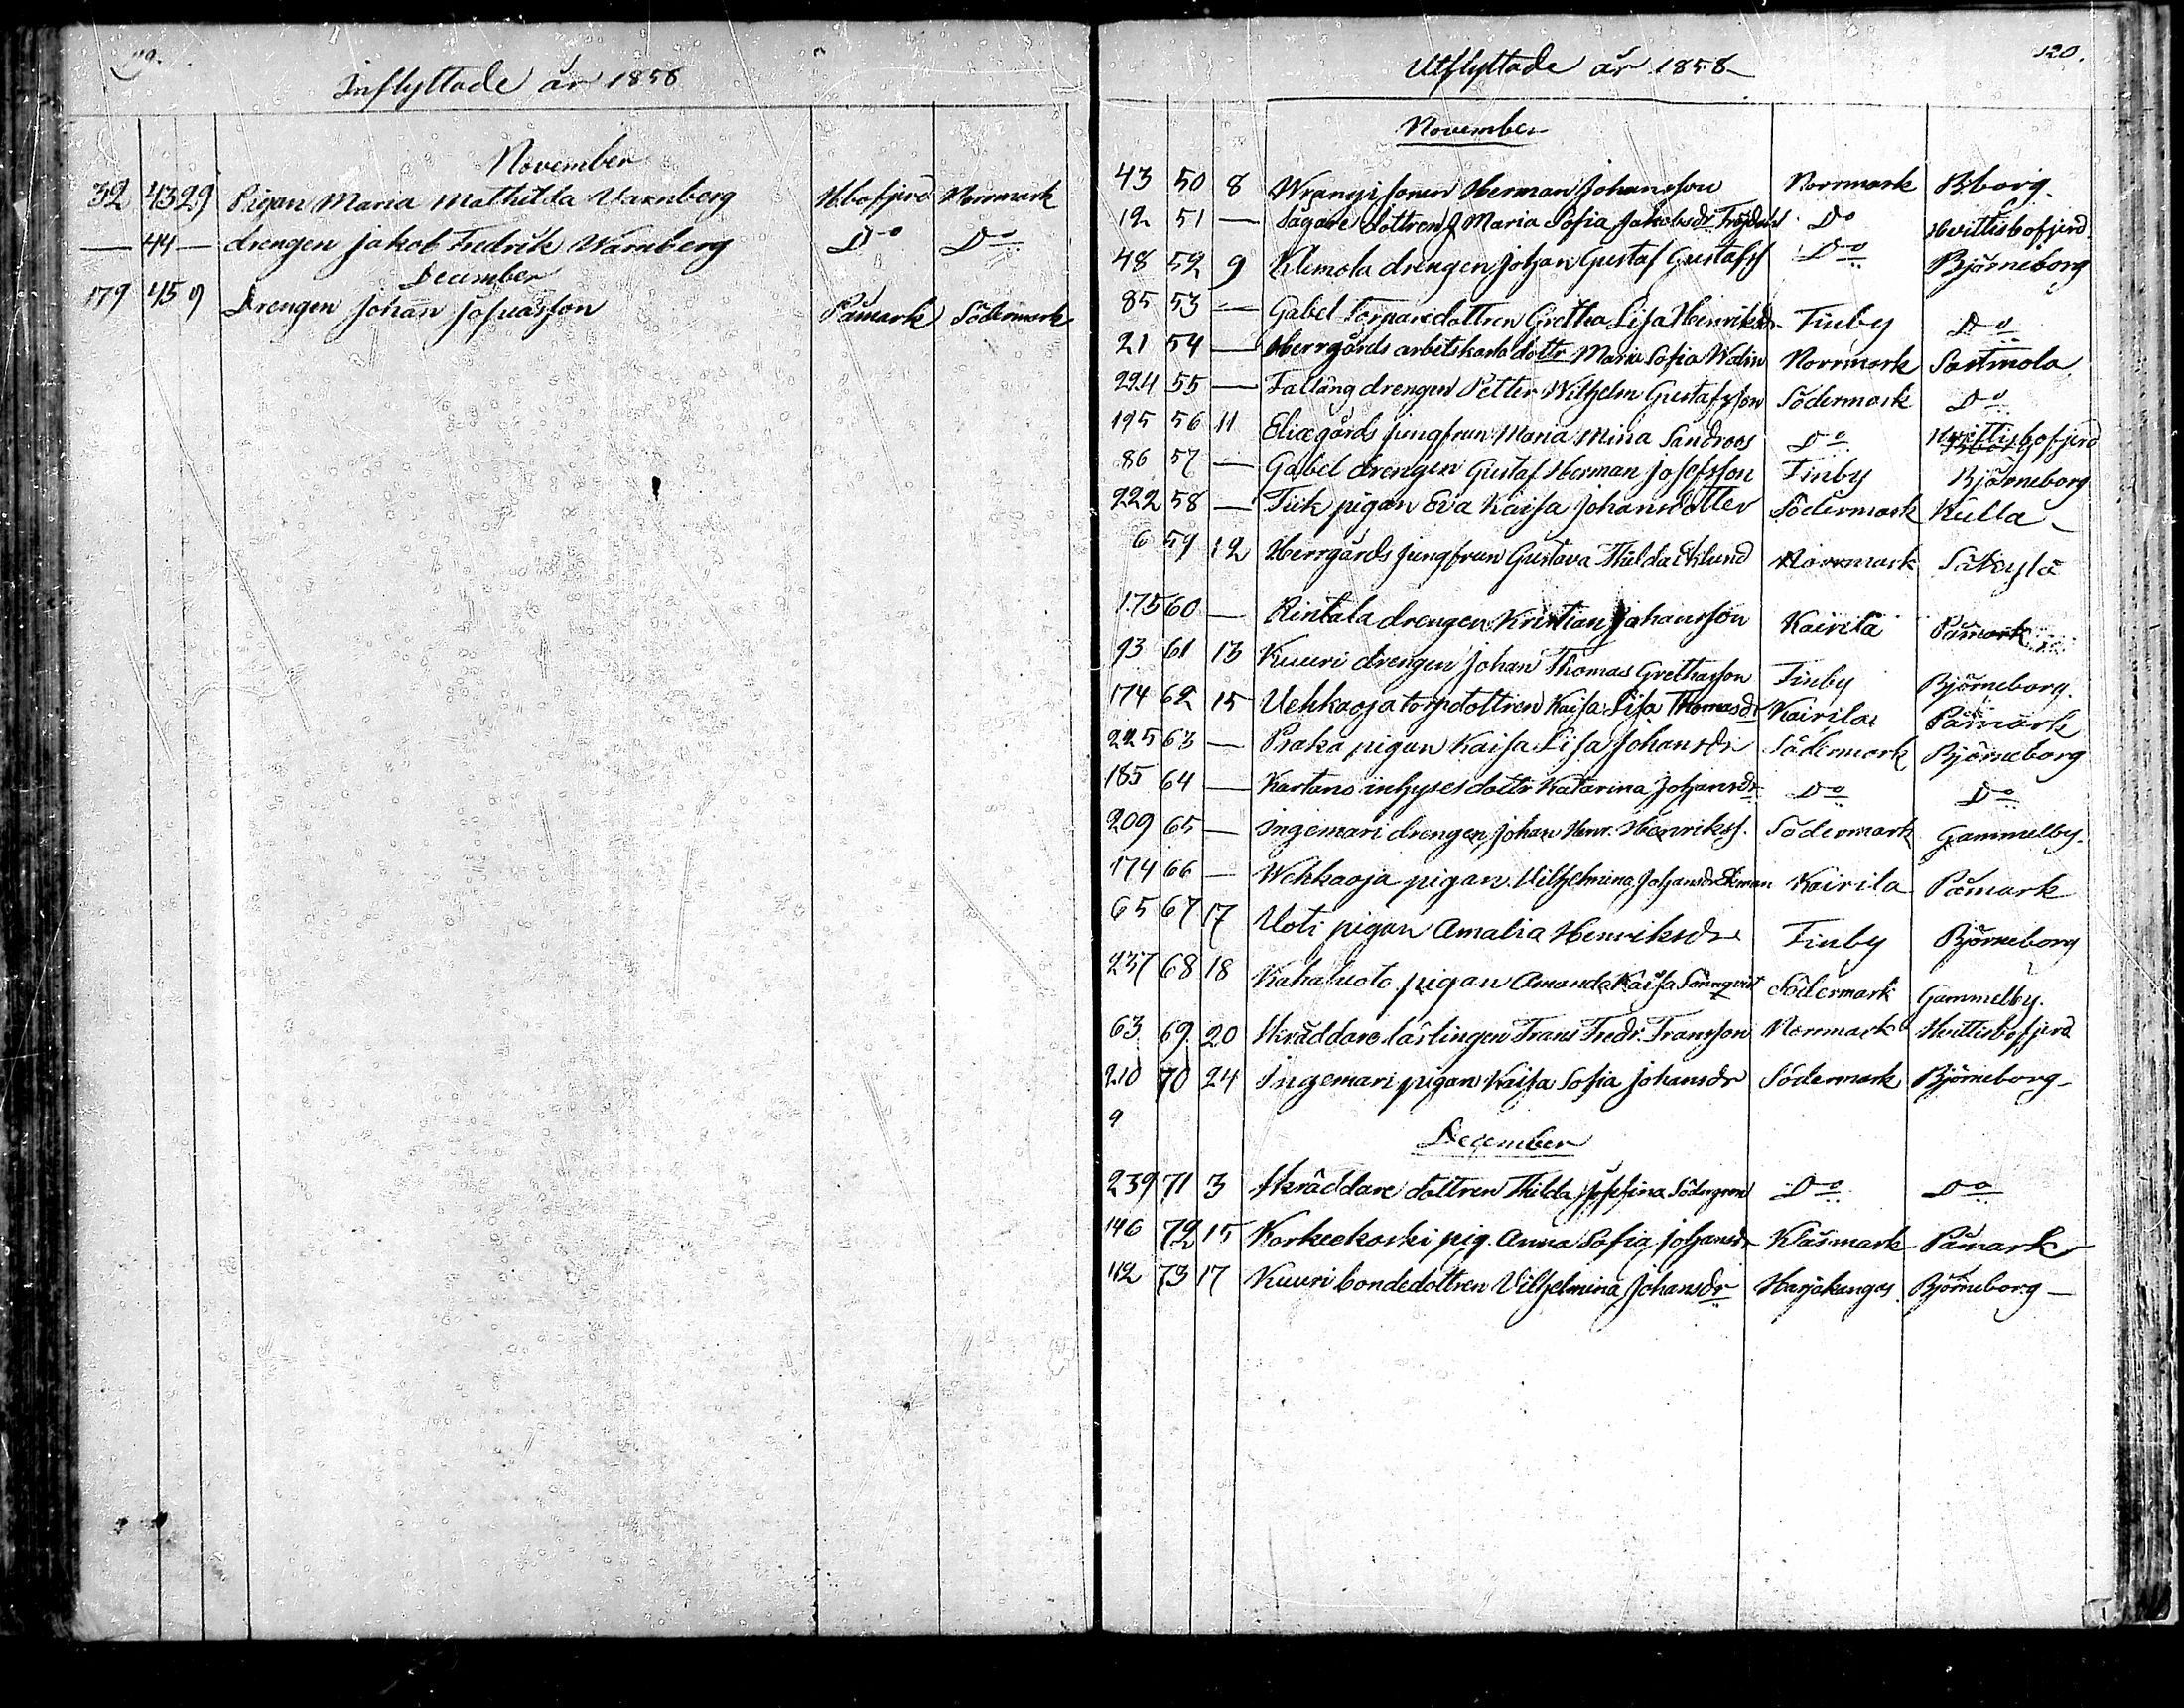 Inflyttade år 1858
November
32 43 29 Pigan Maria Mathilda Varnberg Hbofjerd Norrmark
— 44 — drengen Jakob Fredrik Warnberg Do Do
December
179 45 9 Drengen Johan Josuasson Påmark Södermark
120.
Utflyttade år 1858
November
43 50 8 Wrangi sonen Herman Johansson Norrmark Bborg.
12 51 — Sågare dottren Maria Sofia Jakobsdr Do Hvittisbofjerd.
48 52 9 Klemola drengen Johan Gustaf Gustafss Do Björneborg
85 53 — Gabel Torparedottren Gretha Lisa Henriksdr Finby Do
21 54 — Herrgårds arbetskarls dottr Maria Sofia Walin Norrmark Sastmola
224 55 — Fallång drengen Petter Wilhelm Gustafsson Södermark Do
195 56 11 Eliægårds jungfrun Maria Mina Sandroos Do Hvittisbofjerd
86 57 — Gabel drengen Gustaf Herman Josefsson Finby Björneborg
222 58 — Tuk pigan Eva Kaisa Johansdotter Södermark Kulla
6 59 12 Herrgårds jungfrun Gustava Thilda Eklund Norrmark Säkylä
175 60 — Rintala drengen Kristian Johansson Kairila Påmark
93 61 13 Kuuri drengen Johan Thomas Grethasson Finby Björneborg.
174 62 15 Uehkaoja torpdottren Kaisa Lisa Thomasdr Kairila Påmark
225 63 — Praka pigan Kaisa Lisa Johansdr Södermark Björneborg
185 64 — Kartano inhysesdottr Katarina Johansdr Do Do
209 65 — Ingemari drengen Johan Henr. Henrikss. Södermark Gammelby.
174 66 — Wehkaoja pigan Vilhelmina Johansdr Ekman Kairila Påmark
65 67 17 Uoti pigan Amalia Henriksdr Finby Björneborg
237 68 18 Kahaluoto pigan Amanda Kaisa Sönnqvist Södermark Gammelby.
63 69 20 Skräddare lärlingen Frans Fredr. Fransson Norrmark Hvittisbofjerd
210 70 24 Ingemari pigan Kaisa Sofia Johansdr Södermark Björneborg
9
December
239 71 3 Skräddare dottren Thilda Josefina Södergren Do Do
146 72 15 Korkeekoski pig. Anna Sofia Johansdr Klåsmark Påmark
112 73 17 Kuuri bondedottren Vilhelmina Johansdr Harjakangas Björneborg —